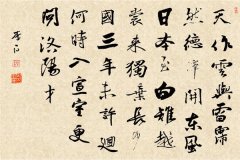 天作雲與雷霈
然德澤開東風
日本至白雉越
裳來獨棄長沙
國三年未許迴
何時入宣室更
問洛陽才